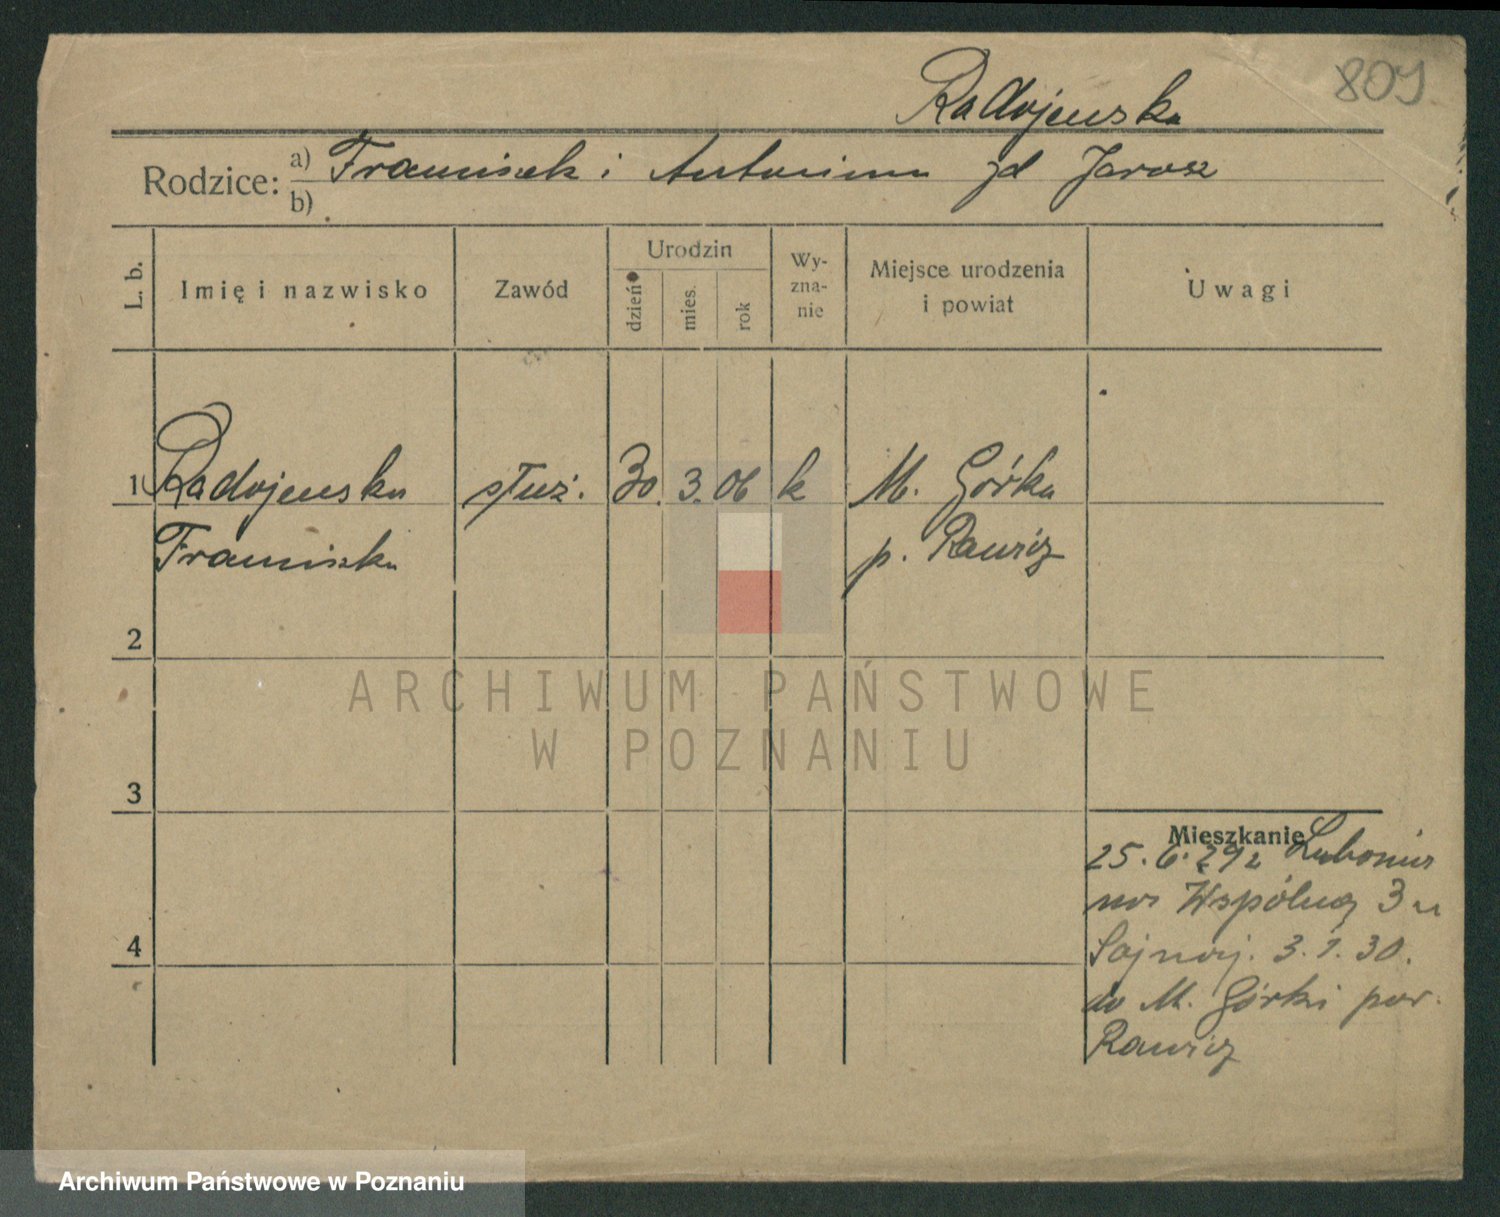 809
Radojewska
Rodzice: a) Franciszek i Antonina zd Jarosz
b)
L. b.
Imię i nazwisko
Zawód
Urodzin
dzień
mies.
rok
Wy-
zna-
nie
Miejsce urodzenia
i powiat
Uwagi
1 Radojewska służ. 30. 3. 06 k M. Górka
Franciszka p. Rawicz
2
3
4
Mieszkanie
25. 6. 29 z Lubonia
Wspólna 3
3. 1. 30.
do M. Górki pow.
Rawicz
ARCHIWUM PAŃSTWOWE
W POZNANIU
Archiwum Państwowe w Poznaniu